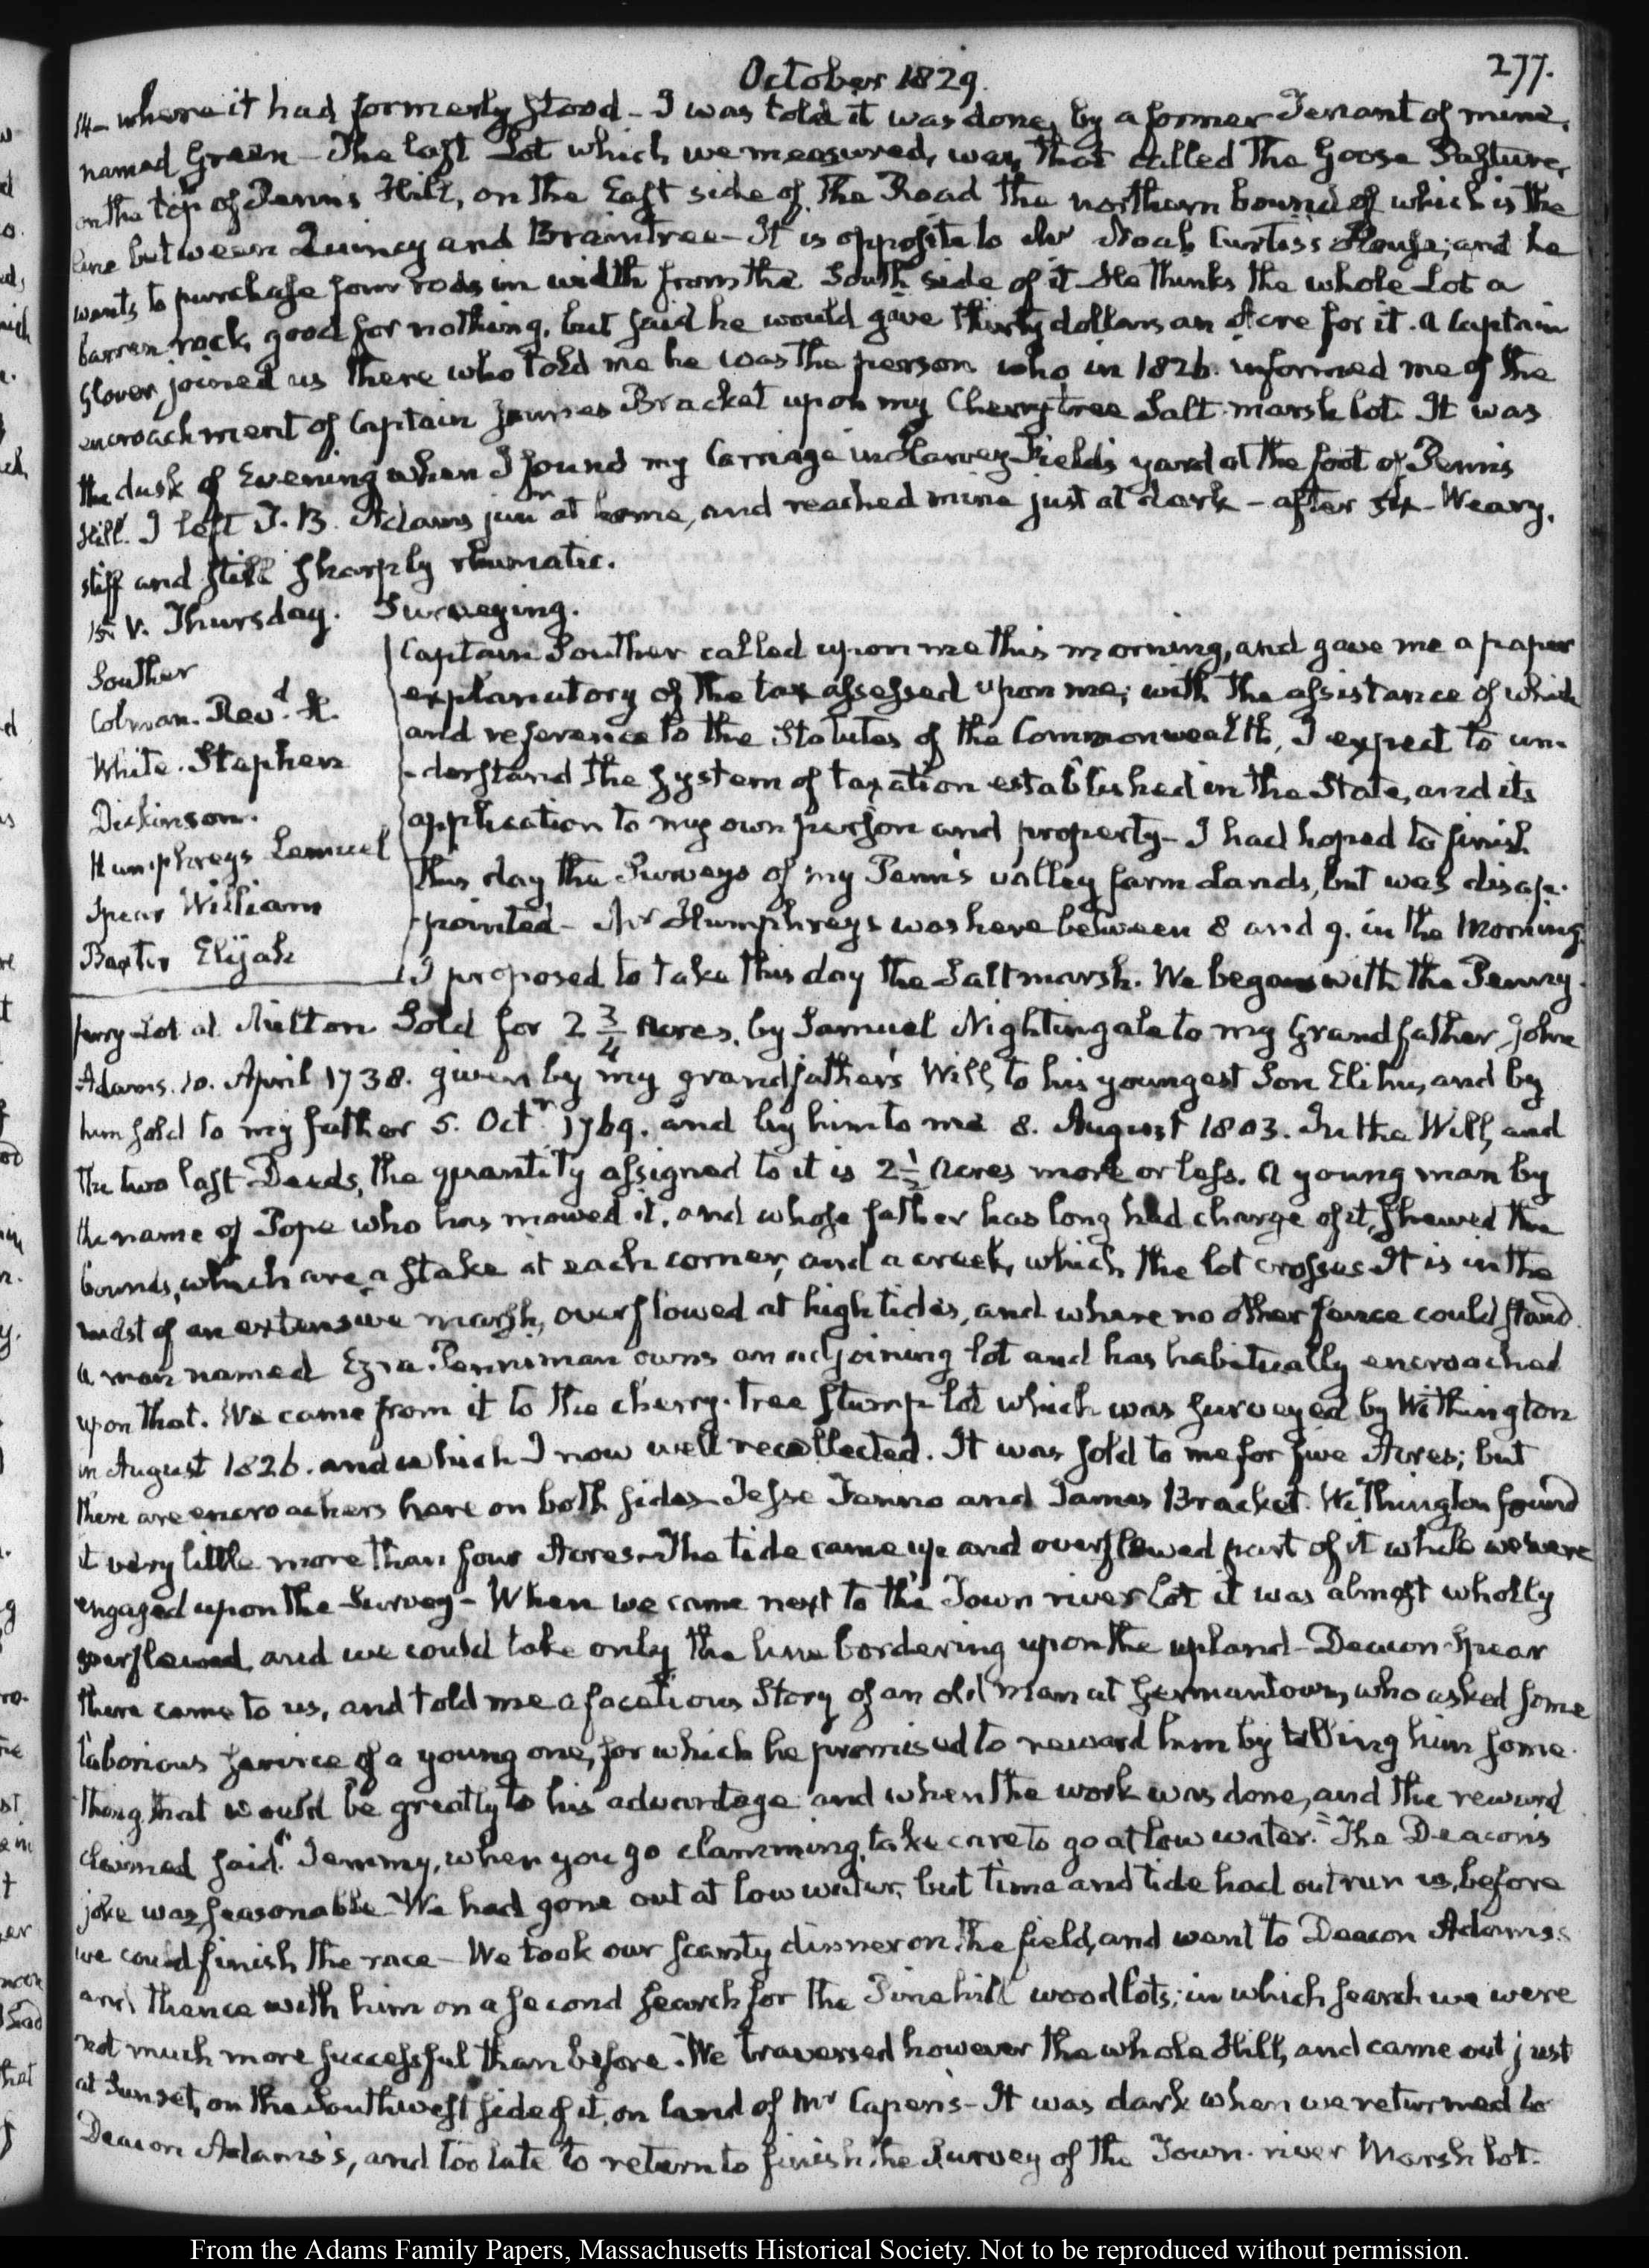 October 1829.
277.
14— where it had formerly stood— I was told it was done, by a former Tenant of mine,
named Green— The last Lot which we measured, was that called the Goose Pasture,
on the top of Penn's Hill, on the East side of the Road the northern bound of which is the
line between Quincy and Braintree— It is opposite to Mr Noah Curtiss House; and he
wants to purchase four rods in width from the South side of it— He thinks the whole Lot a
barren rock, good for nothing, but said he would give thirty dollars an Acre for it. A Captain
Glover, joined us there who told me he was the person who in 1826. informed me of the
encroachment of Captain James Bracket upon my Cherry tree Salt-marsh lot. It was
the dusk of Evening when I found my Carriage in Harvey Field's yard at the foot of Penn's
Hill. I left T. B. Adams junr at home, and reached mine just at dark— after 5¼— Weary,
stiff and still sharply rheumatic.
15. V. Thursday. Surveying.
Souther
Colman. Revd. H.
White. Stephen
Dickinson.
Humphreys Lemuel
Spear William
Baxter Elijah
Captain Souther called upon me this morning, and gave me a paper
explanatory of the tax assessed upon me; with the assistance of which
and reference to the Statutes of the Commonwealth, I expect to un-
-derstand the system of taxation established in the State, and its
application to my own person and property— I had hoped to finish
this day the Surveys of my Penn's valley farm Lands, but was disap-
-pointed— Mr Humphreys was here between 8 and 9. in the morning.
I proposed to take this day the Salt marsh. We began with the Penny-
ferry Lot at Milton. Sold for 2 3/4 Acres, by Samuel Nightingale to my Grandfather John
Adams. 10. April 1738. given by my grandfather's Will, to his youngest Son Elihu, and by
him sold to my father 5. Octr 1769. and by him to me 8. August 1803. In the Will, and
the two last Deeds, the quantity assigned to it is 2 1/2 Acres more or less. A young man by
the name of Pope who has mowed it, and whose father has long had charge of it, shewed the
bounds, which are a stake at each corner, and a creek, which the lot crosses— It is in the
midst of an extensive marsh, overflowed at high tides, and where no other fence could stand.
A man named Ezra Penniman owns an adjoining lot and has habitually encroached
upon that. We came from it to the cherry-tree stump lot which was surveyed by Withington
in August 1826. and which I now well recollected. It was sold to me for five Acres; but
there are encroachers here on both sides— Jesse Fenno and James Bracket. Withington found
it very little more than four Acres— The tide came up and overflowed part of it while we were
engaged upon the Survey— When we came next to the Town river Lot it was almost wholly
overflowed, and we could take only the line bordering upon the upland— Deacon Spear
there came to us, and told me a facetious Story of an old man at Germantown, who asked some
laborious service of a young one, for which he promised to reward him by telling him some-
thing that would be greatly to his advantage and when the work was done, and the reward
claimed said. "Jemmy, when you go clamming, take care to go at low water." The Deacon's
joke was seasonable— We had gone out at low water, but time and tide had outrun us, before
we could finish the race— We took our scanty dinner on the field, and went to Deacon Adams's
and thence with him on a second search for the Pine hill wood lots; in which search we were
not much more successful than before. We traversed however the whole Hill, and came out just
at Sunset, on the Southwest side of it, on land of Mr Capen's— It was dark when we returned to
Deacon Adams's, and too late to return to finish the Survey of the Town-river Marsh lot.
From the Adams Family Papers, Massachusetts Historical Society. Not to be reproduced without permission.